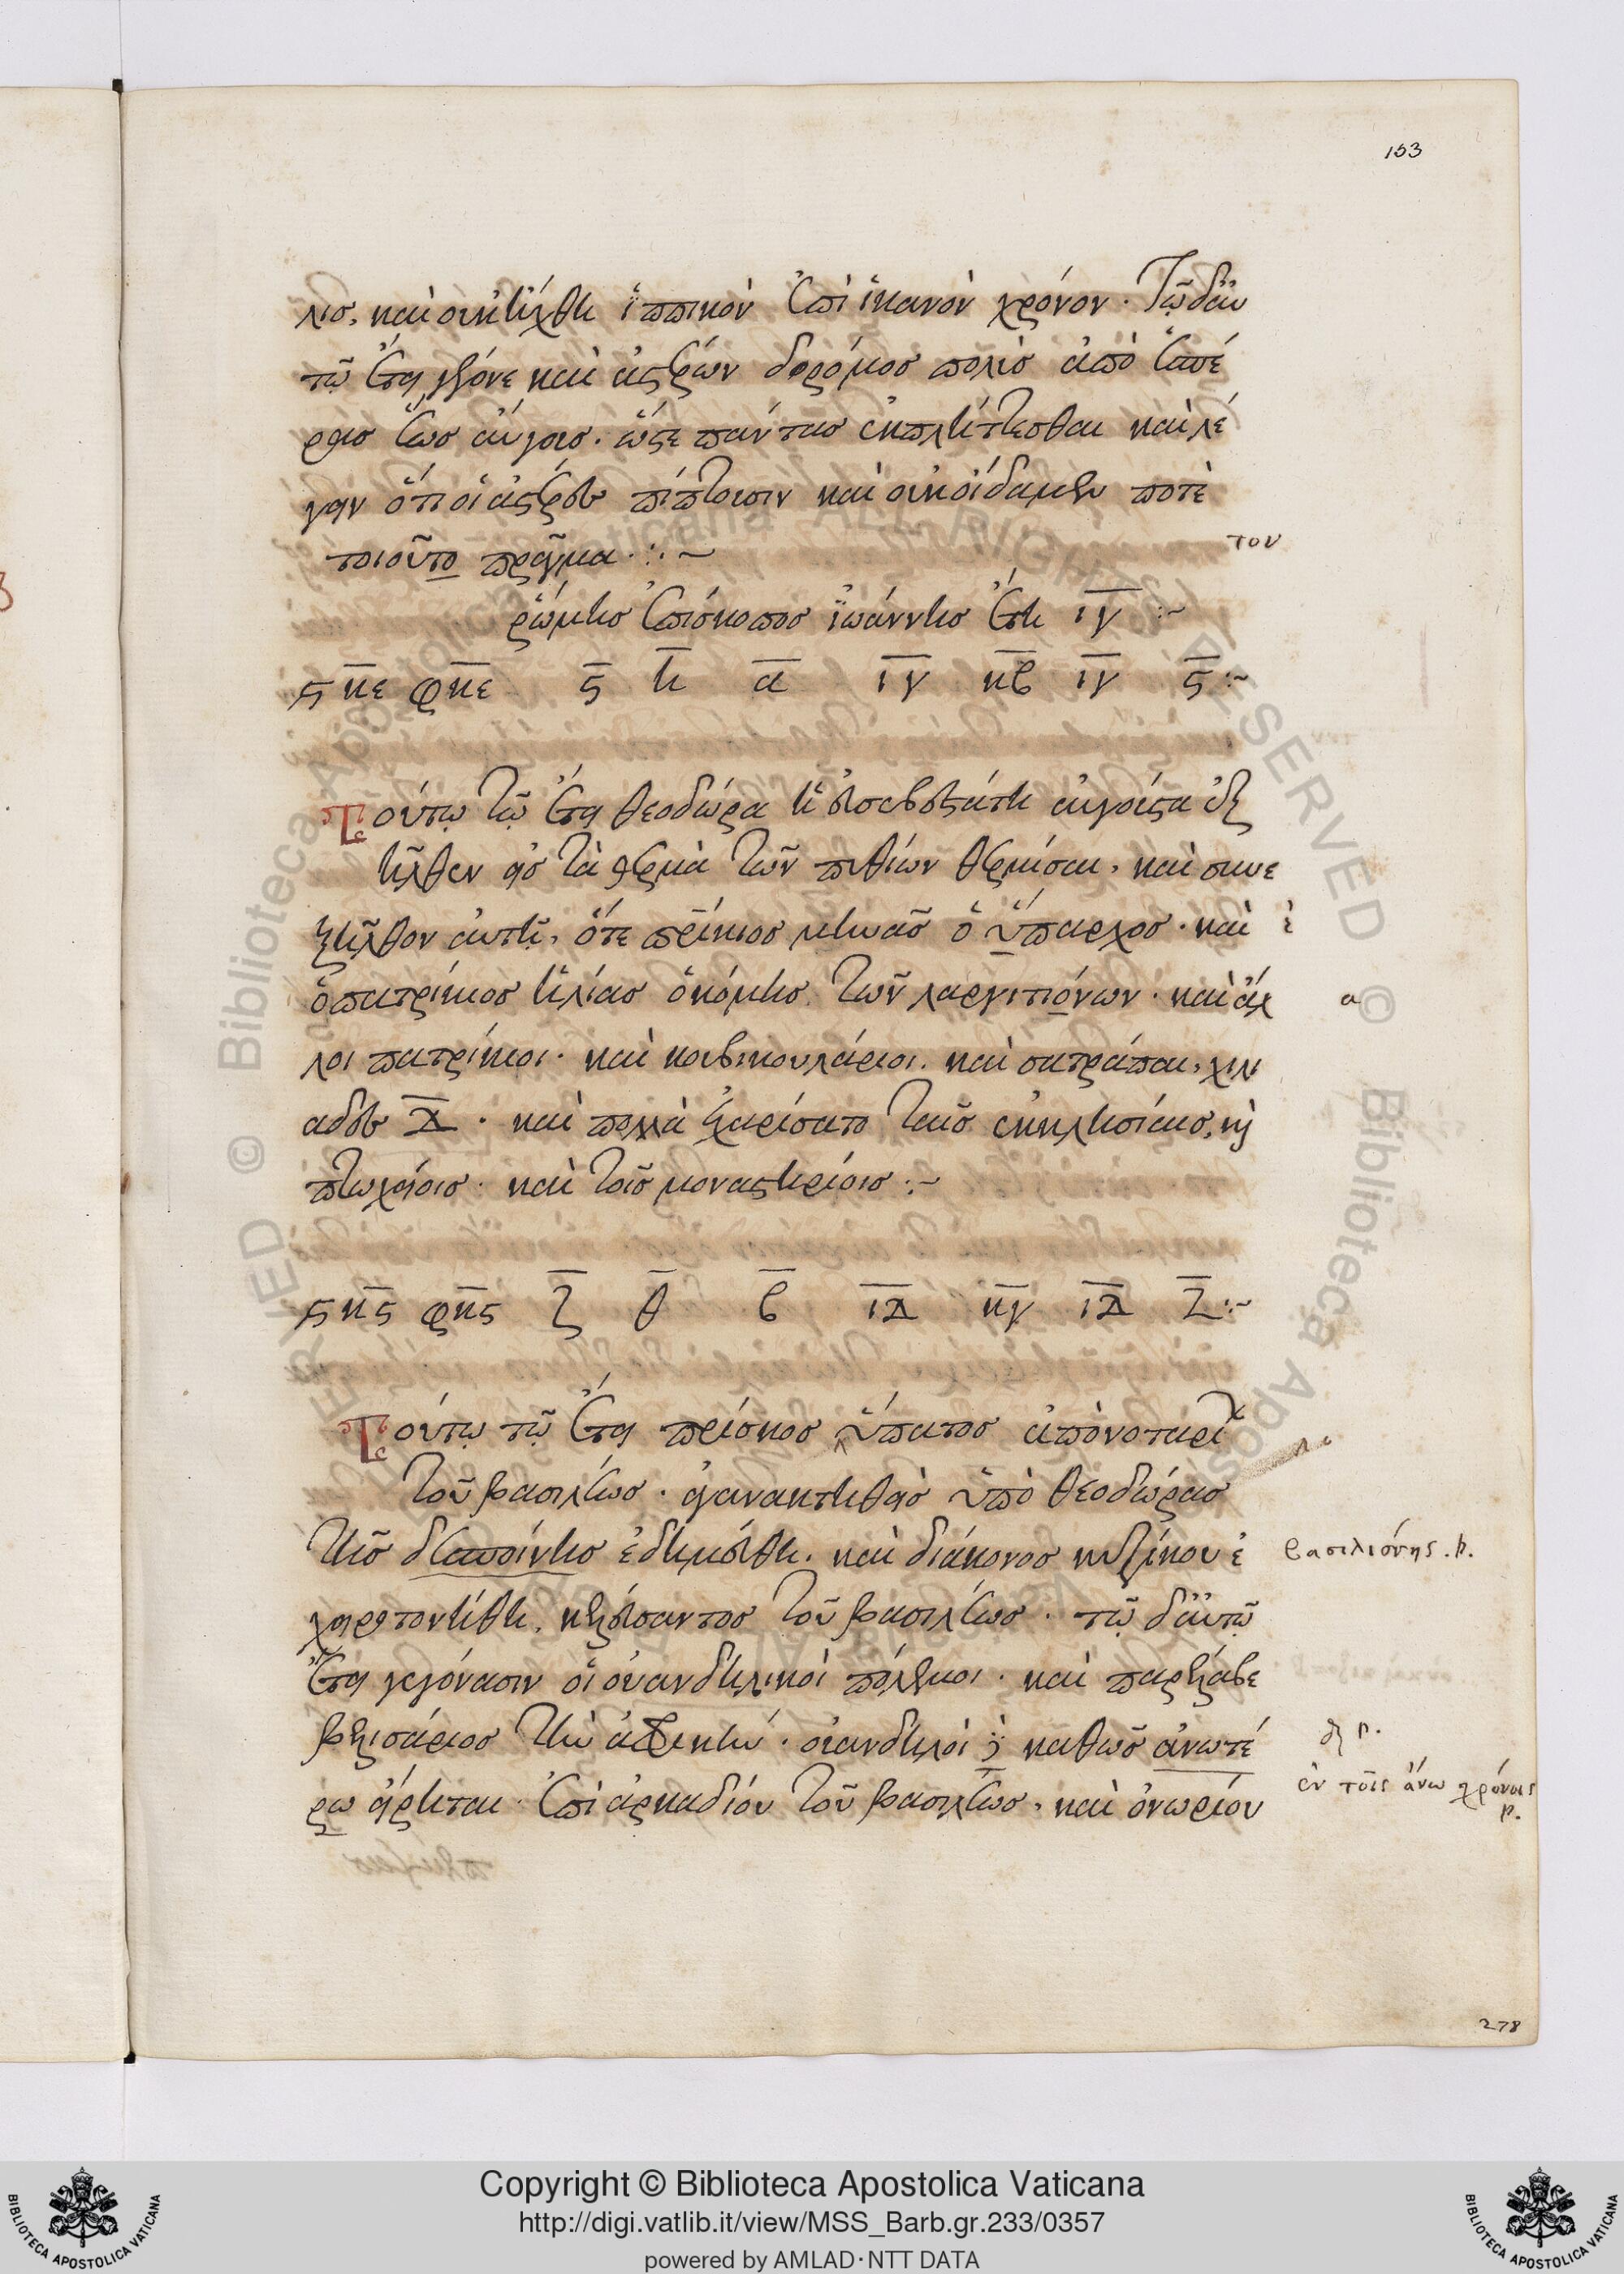 153
λισ, καὶ οὐκ ἤχθη ἱππικὸν ἐπὶ ἱκανὸν χρόνον. Τῷ δ'αὐ
τῷ ἔτει γέγονε καὶ ἀστέρων δρόμος πολὺσ ἀπὸ ἑσπέ
ρασ ἕωσ αὐγούσ. ὥστε πάντασ ἐκπλήττεσθαι καὶ λέ
γειν ὅτι οἱ ἀστέρεσ πίπτουσιν καὶ οὐκ οἴδαμεν ποτὲ
τοιοῦτο πρᾶγμα. :~
τον
ῥώμησ ἐπίσκοποσ ἰωάννησ ἔτη ιγ :~
ϛκε φκε ϛ η α ιγ κβ ιγ ϛ :~
Τούτῳ τῷ ἔτει θεοδώρα ἡ εὐσεβεστάτη αὐγούστα ἐξ
ῆλθεν εἰσ τὰ θερμὰ τῶν πυθίων θερμίσαι, καὶ συνε
ξῆλθον αὐτῆ, ὅτε πρίκιοσ μηνᾶσ ὁ ὕπαρχοσ. καὶ
ὁ πατρίκιοσ ἡλίασ ὁ κόμησ τῶν λαργιτιόνων. καὶ ἄλ
α
λοι πατρίκιοι. καὶ κουβικουλάριοι. καὶ σατράπαι, χιλι
αδεσ δ. καὶ πολλὰ ἐχαρίσατο ταῖσ ἐκκλησίαισ, κὶ
πτωχείοισ. καὶ τοῖσ μοναστηρίοισ :~
ϛκϛ φκϛ ζ θ β ιδ κγ ιδ ζ :~
Τούτῳ τῷ ἔτει πρίσκοσ ὕπατοσ ἀπὸ νοταρί
τοῦ βασιλέωσ. ἀγανακτηθεὶσ ὑπὸ θεοδώρασ
τῆσ δεσποίνησ ἐδημεύθη. καὶ διάκονοσ κυζίκου ἐ
βασιλιόνης. β.
χειροτονήθη, κελεύσαντοσ τοῦ βασιλέωσ. τῷ δ'αὐτῷ
ἔτει γεγόνασιν οἱ οὐανδηλικοὶ πόλεμοι. καὶ παρέλαβε
βελισάριοσ τὴν ἀφρικήν. οὐανδηλοὶ καθῶσ ἀνωτέ
δὲ β.
ρω εἴρηται. ἐπὶ ἀρκαδίου τοῦ βασιλέωσ, καὶ ὀνωρίου
ἐν τοῖς ἄνω χρόνοις
β.
278
Copyright © Biblioteca Apostolica Vaticana
http://digi.vatlib.it/view/MSS_Barb.gr.233/0357
powered by AMLAD·NTT DATA